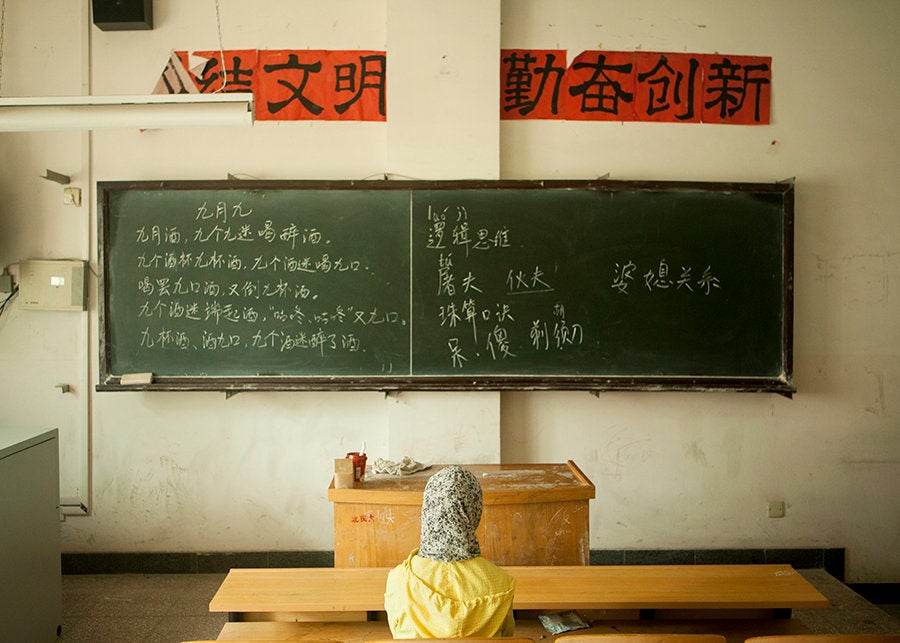 结文明 勤奋创新
九月九
九月酒,九个九迷喝醉酒。
九个酒杯九杯酒,九个酒迷喝九口。
喝罢九口酒,又倒九杯酒。
九个酒迷端起酒,“咕咚、咕咚”又九口。
九杯酒、酒九口,九个酒迷醉了酒.
luó ji
逻辑思维
屠夫 伙夫
珠算口诀
呆.傻 剃须刀
婆媳关系